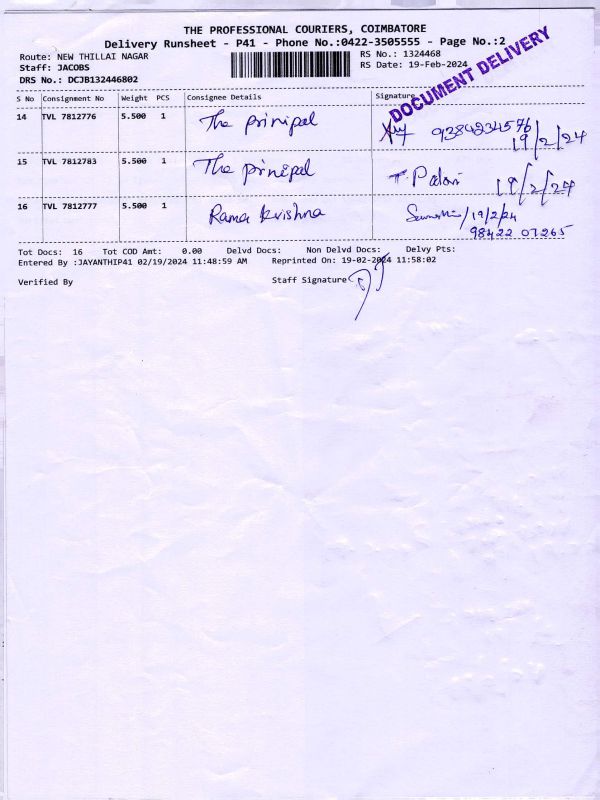 THE PROFESSIONAL COURIERS, COIMBATORE
Delivery Runsheet - P41 - Phone No.:0422-3505555 - Page No.:2
Route: NEW THILLAI NAGAR RS No.: 1324468
Staff: JACOBS RS Date: 19-Feb-2024
DRS No.: DCJB132446802
DOCUMENT DELIVERY
S No Consignment No Weight PCS Consignee Details Signature
14 TVL 7812776 5.500 1 The prinipal 9384234576
19/2/24
15 TVL 7812783 5.500 1 The prinipal 19/2/24
16 TVL 7812777 5.500 1 Rama krishna 19/2/24
98422 07265
Tot Docs: 16 Tot COD Amt: 0.00 Delvd Docs: Non Delvd Docs: Delvy Pts:
Entered By :JAYANTHIP41 02/19/2024 11:48:59 AM Reprinted On: 19-02-2024 11:58:02
Verified By Staff Signature